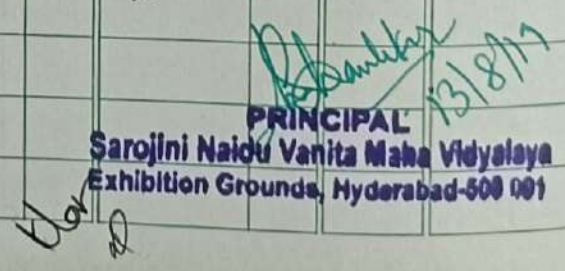 13/8/19
PRINCIPAL
Sarojini Naidu Vanita Maha Vidyalaya
Exhibition Grounds, Hyderabad-500 001